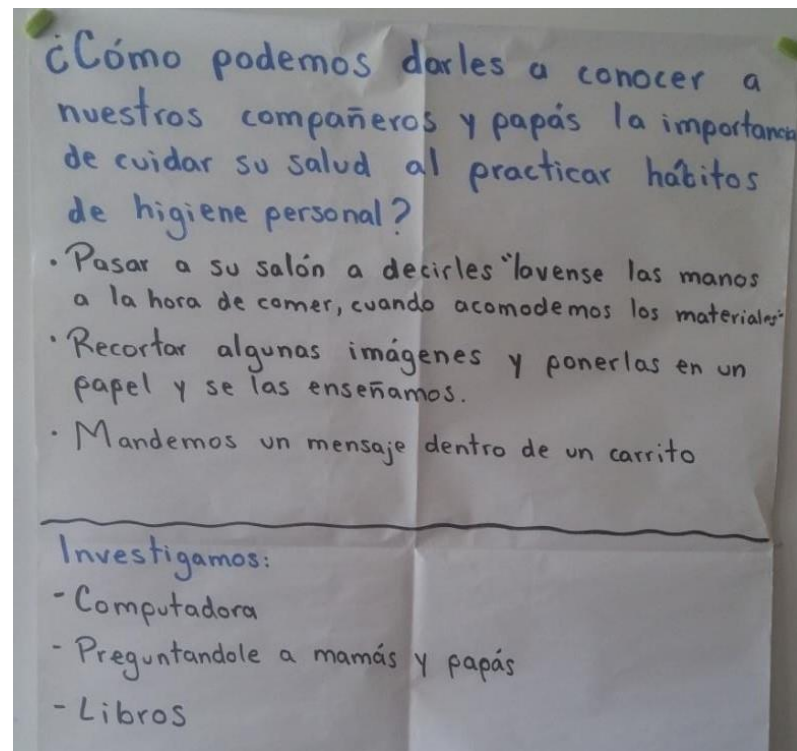 ¿Cómo podemos darles a conocer a
nuestros compañeros y papás la importancia
de cuidar su salud al practicar hábitos
de higiene personal?
• Pasar a su salón a decirles "lavense las manos
a la hora de comer, cuando acomodemos los materiales"
• Recortar algunas imágenes y ponerlas en un
papel y se las enseñamos.
• Mandemos un mensaje dentro de un carrito
Investigamos:
- Computadora
- Preguntandole a mamás y papás
- Libros